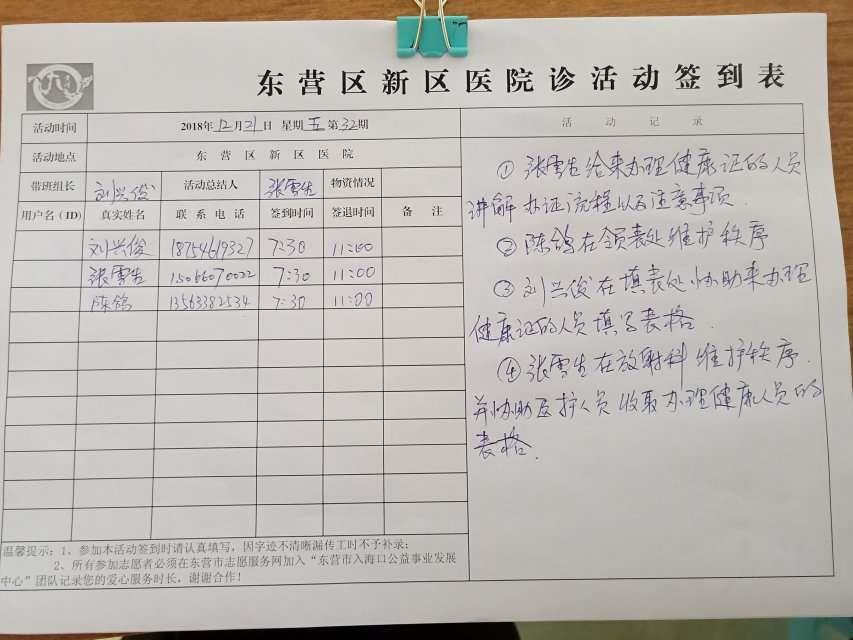 东营区新区医院诊活动签到表
活动时间 2018年12月21日 星期五 第32期 活动记录
活动地点 东营区新区医院
带班组长 刘兴俊 活动总结人 张雪生 物资情况
用户名（ID） 真实姓名 联系电话 签到时间 签退时间 备注
刘兴俊 18754619327 7:30 11:00
张雪生 15066070022 7:30 11:00
陈鸽 13563382534 7:30 11:00
①张雪生给来办理健康证的人员
讲解办证流程以及注意事项.
②陈鸽在领表处维护秩序
③刘兴俊在填表处协助来办理
健康证的人员填写表格.
④张雪生在放射科维护秩序.
并协助医护人员收取办理健康人员的
表格.
温馨提示：1、参加本活动签到时请认真填写，因字迹不清晰漏传工时不予补录；
2、所有参加志愿者必须在东营市志愿服务网加入“东营市入海口公益事业发展
中心”团队记录您的爱心服务时长，谢谢合作！